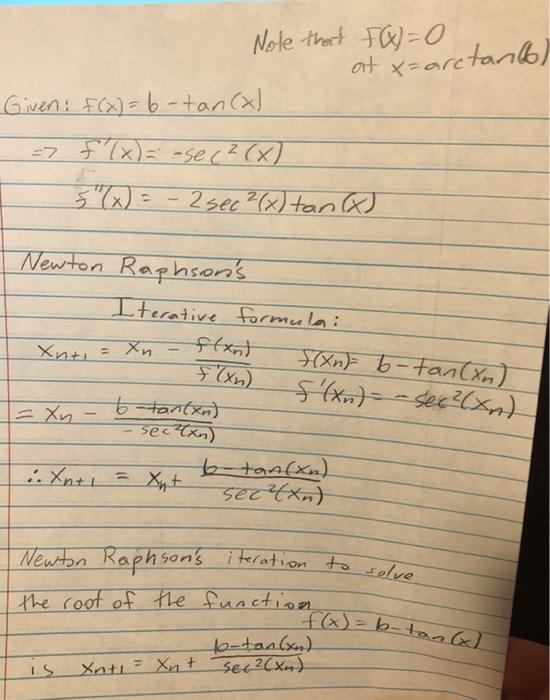 Note that f(x)=0
at x=arctan(b)
Given: f(x)=b-tan(x)
=> f'(x)= -sec²(x)
f''(x) = - 2sec²(x)tan(x)
Newton Raphson's
Iterative formula:
xn+1 = xn - f(xn)/f'(xn) f(xn)= b-tan(xn)
f'(xn)= -sec²(xn)
= xn - b-tan(xn)/-sec²(xn)
∴ xn+1 = xn+ b-tan(xn)/sec²(xn)
Newton Raphson's iteration to solve
the root of the function
f(x)=b-tan(x)
is xn+1 = xn+ b-tan(xn)/sec²(xn)